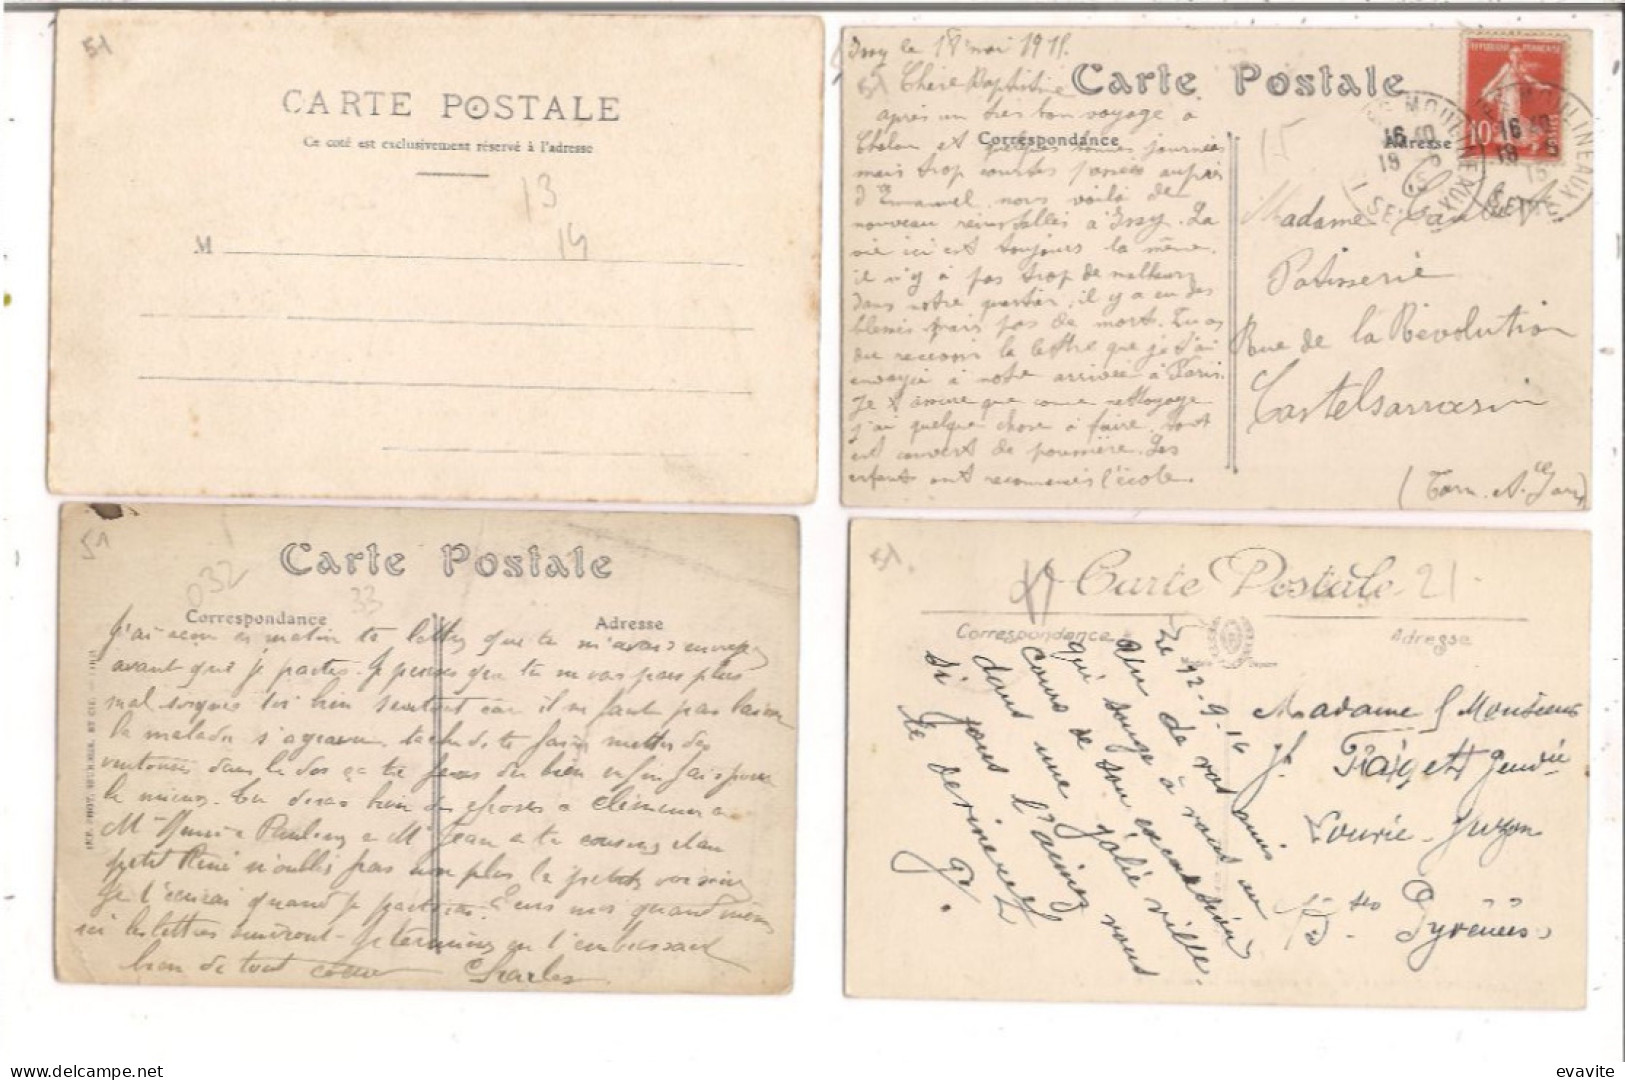 51
CARTE POSTALE
Ce coté est exclusivement réservé à l'adresse
13
14
M
Issy le 18 mai 1915.
51 Chère Baptistine
Carte Postale
après un très bon voyage à
Correspondance
Chalon et quelques bonnes journées
mais trop courtes passées auprès
d'Emmanuel, nous voilà de
nouveau réinstallés à Issy. La
vie ici est toujours la même.
il n'y a pas trop de malheurs
dans notre quartier, il y a eu des
blessés mais pas de morts. Tu as
du recevoir la lettre que je t'ai
envoyée à notre arrivée à Paris.
Je t'assure que comme nettoyage
j'ai quelque chose à faire, tout
est couvert de poussière. Les
enfants ont recommencé l'école.
15
Adresse
REPUBLIQUE FRANÇAISE
10c
MOULINEAUX
16 40
18 5
15
SEINE
Madame
Patisserie
Rue de la Révolution
Castelsarrasin
(Tarn. et. Gar)
51
Carte Postale
032
33
Correspondance
Adresse
J'ai reçu ce matin ta lettre que tu m'avais envoyé
avant que je partes. Je penses que tu ne vas pas plus
mal soignes toi bien surtout car il ne faut pas laisser
la maladie s'agraver, taches de te faire mettre des
ventouses dans le dos ça te feras du bien enfin fais pour
le mieux. Tu diras bien des choses a Clémence a
Mme Pauline a Mr Jean a ta cousine et au
petit René n'oublis pas non plus la petite voisine
Je t'écrirai quand je partirai. Ecris moi quand même
ici les lettres suivront. Je termine en t'embrassant
bien de tout coeur Charles
51
Carte Postale
21
Correspondance
Adresse
Le 12-9-16
Un de vos amis
qui songe à vous au
cours de son excursion
dans une jolie ville.
Si vous l'aimez
le devinerez
J.
Madame & Monsieur
J.
Louvie-Juzon
Bses Pyrénées